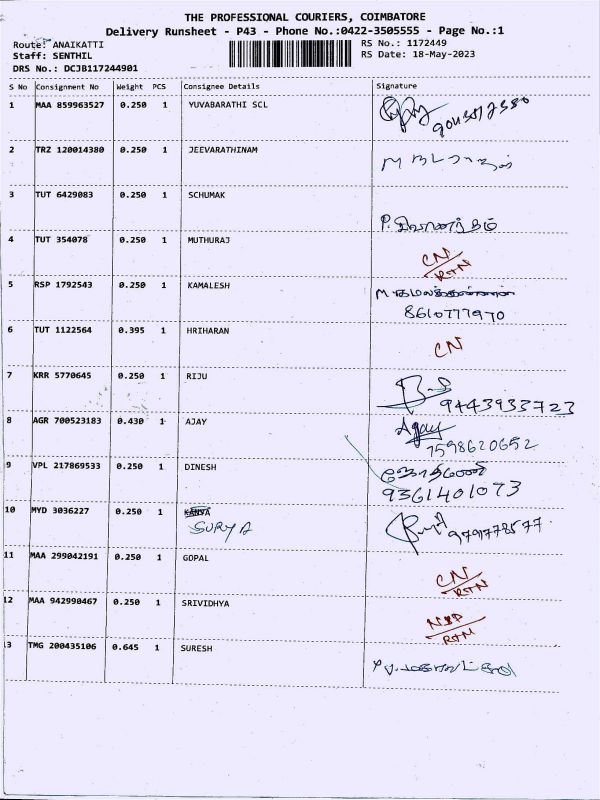 THE PROFESSIONAL COURIERS, COIMBATORE
Delivery Runsheet - P43 - Phone No.:0422-3505555 - Page No.:1
Route: ANAIKATTI
RS No.: 1172449
Staff: SENTHIL
RS Date: 18-May-2023
DRS No.: DCJB117244901
S No Consignment No Weight PCS Consignee Details Signature
1 MAA 859963527 0.250 1 YUVABARATHI SCL
2 TRZ 120014380 0.250 1 JEEVARATHINAM
3 TUT 6429083 0.250 1 SCHUMAK
4 TUT 354078 0.250 1 MUTHURAJ CN/RTN
5 RSP 1792543 0.250 1 KAMALESH
8610777970
6 TUT 1122564 0.395 1 HRIHARAN CN
7 KRR 5770645 0.250 1 RIJU
9443933723
8 AGR 700523183 0.430 1 AJAY Ajay
7598620652
9 VPL 217869533 0.250 1 DINESH
9361401073
10 MYD 3036227 0.250 1
SURYA 9791778577
11 MAA 299042191 0.250 1 GOPAL CN/RTN
12 MAA 942990467 0.250 1 SRIVIDHYA RTN
3 TMG 200435106 0.645 1 SURESH